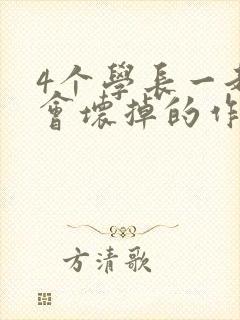 4个學長一
會壞掉的作
方清歌